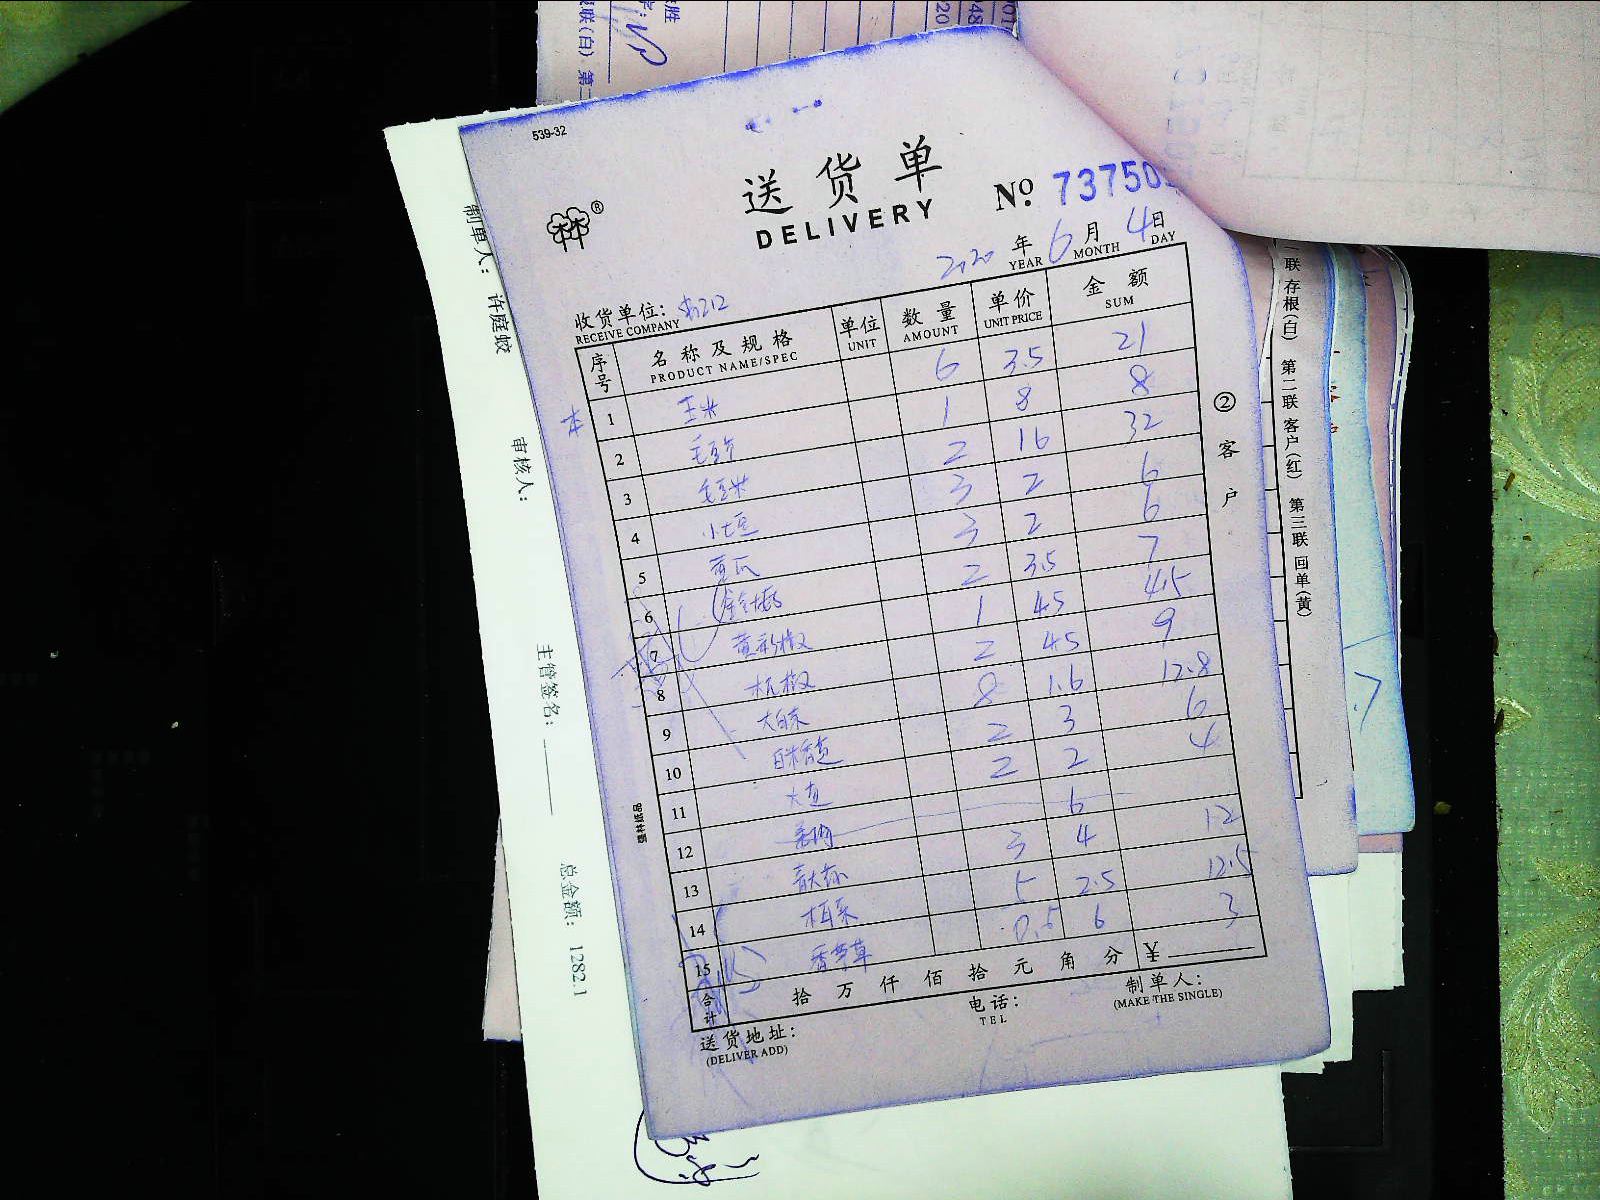 539-32
送货单
DELIVERY
№ 73750
2020 年 YEAR 6 月 MONTH 4 日 DAY
收货单位:
RECEIVE COMPANY
序号 名称及规格 PRODUCT NAME/SPEC 单位 UNIT 数量 AMOUNT 单价 UNIT PRICE 金额 SUM
1 玉米 6 3.5 21
2 毛豆节 1 8 8
3 毛豆米 2 16 32
4 小土豆 3 2 6
5 黄瓜 3 2 6
6 金针菇 2 3.5 7
7 黄彩椒 1 4.5 4.5
8 杭椒 2 4.5 9
9 大白菜 8 1.6 12.8
10 白米香葱 2 3 6
11 大 2 2 4
12 6
13 3 4 12
14 5 2.5 12.5
15 香芹草 0.5 6 3
合计 拾 万 仟 佰 拾 元 角 分 ¥
送货地址:
(DELIVER ADD)
电话:
TEL
制单人:
(MAKE THE SINGLE)
② 客户
盛林纸品
本
制单人: 许庭蛟
审核人:
主管签名:
总金额: 1282.1
联 存根(白) 第二联 客户(红) 第三联 回单(黄)
联(白) 第二